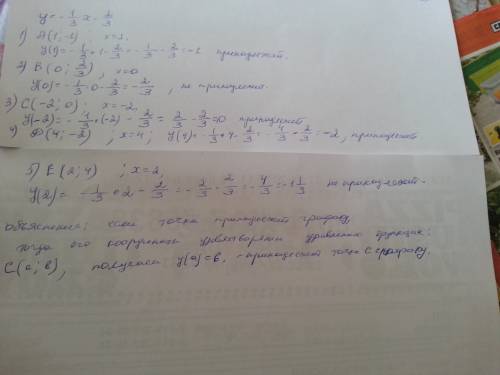 y = -1/3 x - 2/3
1) A(1;-1) ; x=1,
y(1) = -1/3 · 1 - 2/3 = -1/3 - 2/3 = -1 принадлежит.
2) B(0; 2/3), x=0
y(0) = -1/3 · 0 - 2/3 = -2/3, не принадлежит.
3) C(-2; 0) : x=-2,
y(-2) = -1/3 · (-2) - 2/3 = 2/3 - 2/3 = 0 принадлежит
4) D(4; -2) ; x=4 ; y(4) = -1/3 · 4 - 2/3 = -4/3 - 2/3 = -2, принадлежит
5) E(2; 4) ; x=2,
y(2) = -1/3 · 2 - 2/3 = -2/3 - 2/3 = -4/3 = -1 1/3 не принадлежит.
объяснение: если точка принадлежит графику,
тогда его координаты удовлетворяют уравнению функции:
C(a; b), y(a)=b, - принадлежит точка C графику.